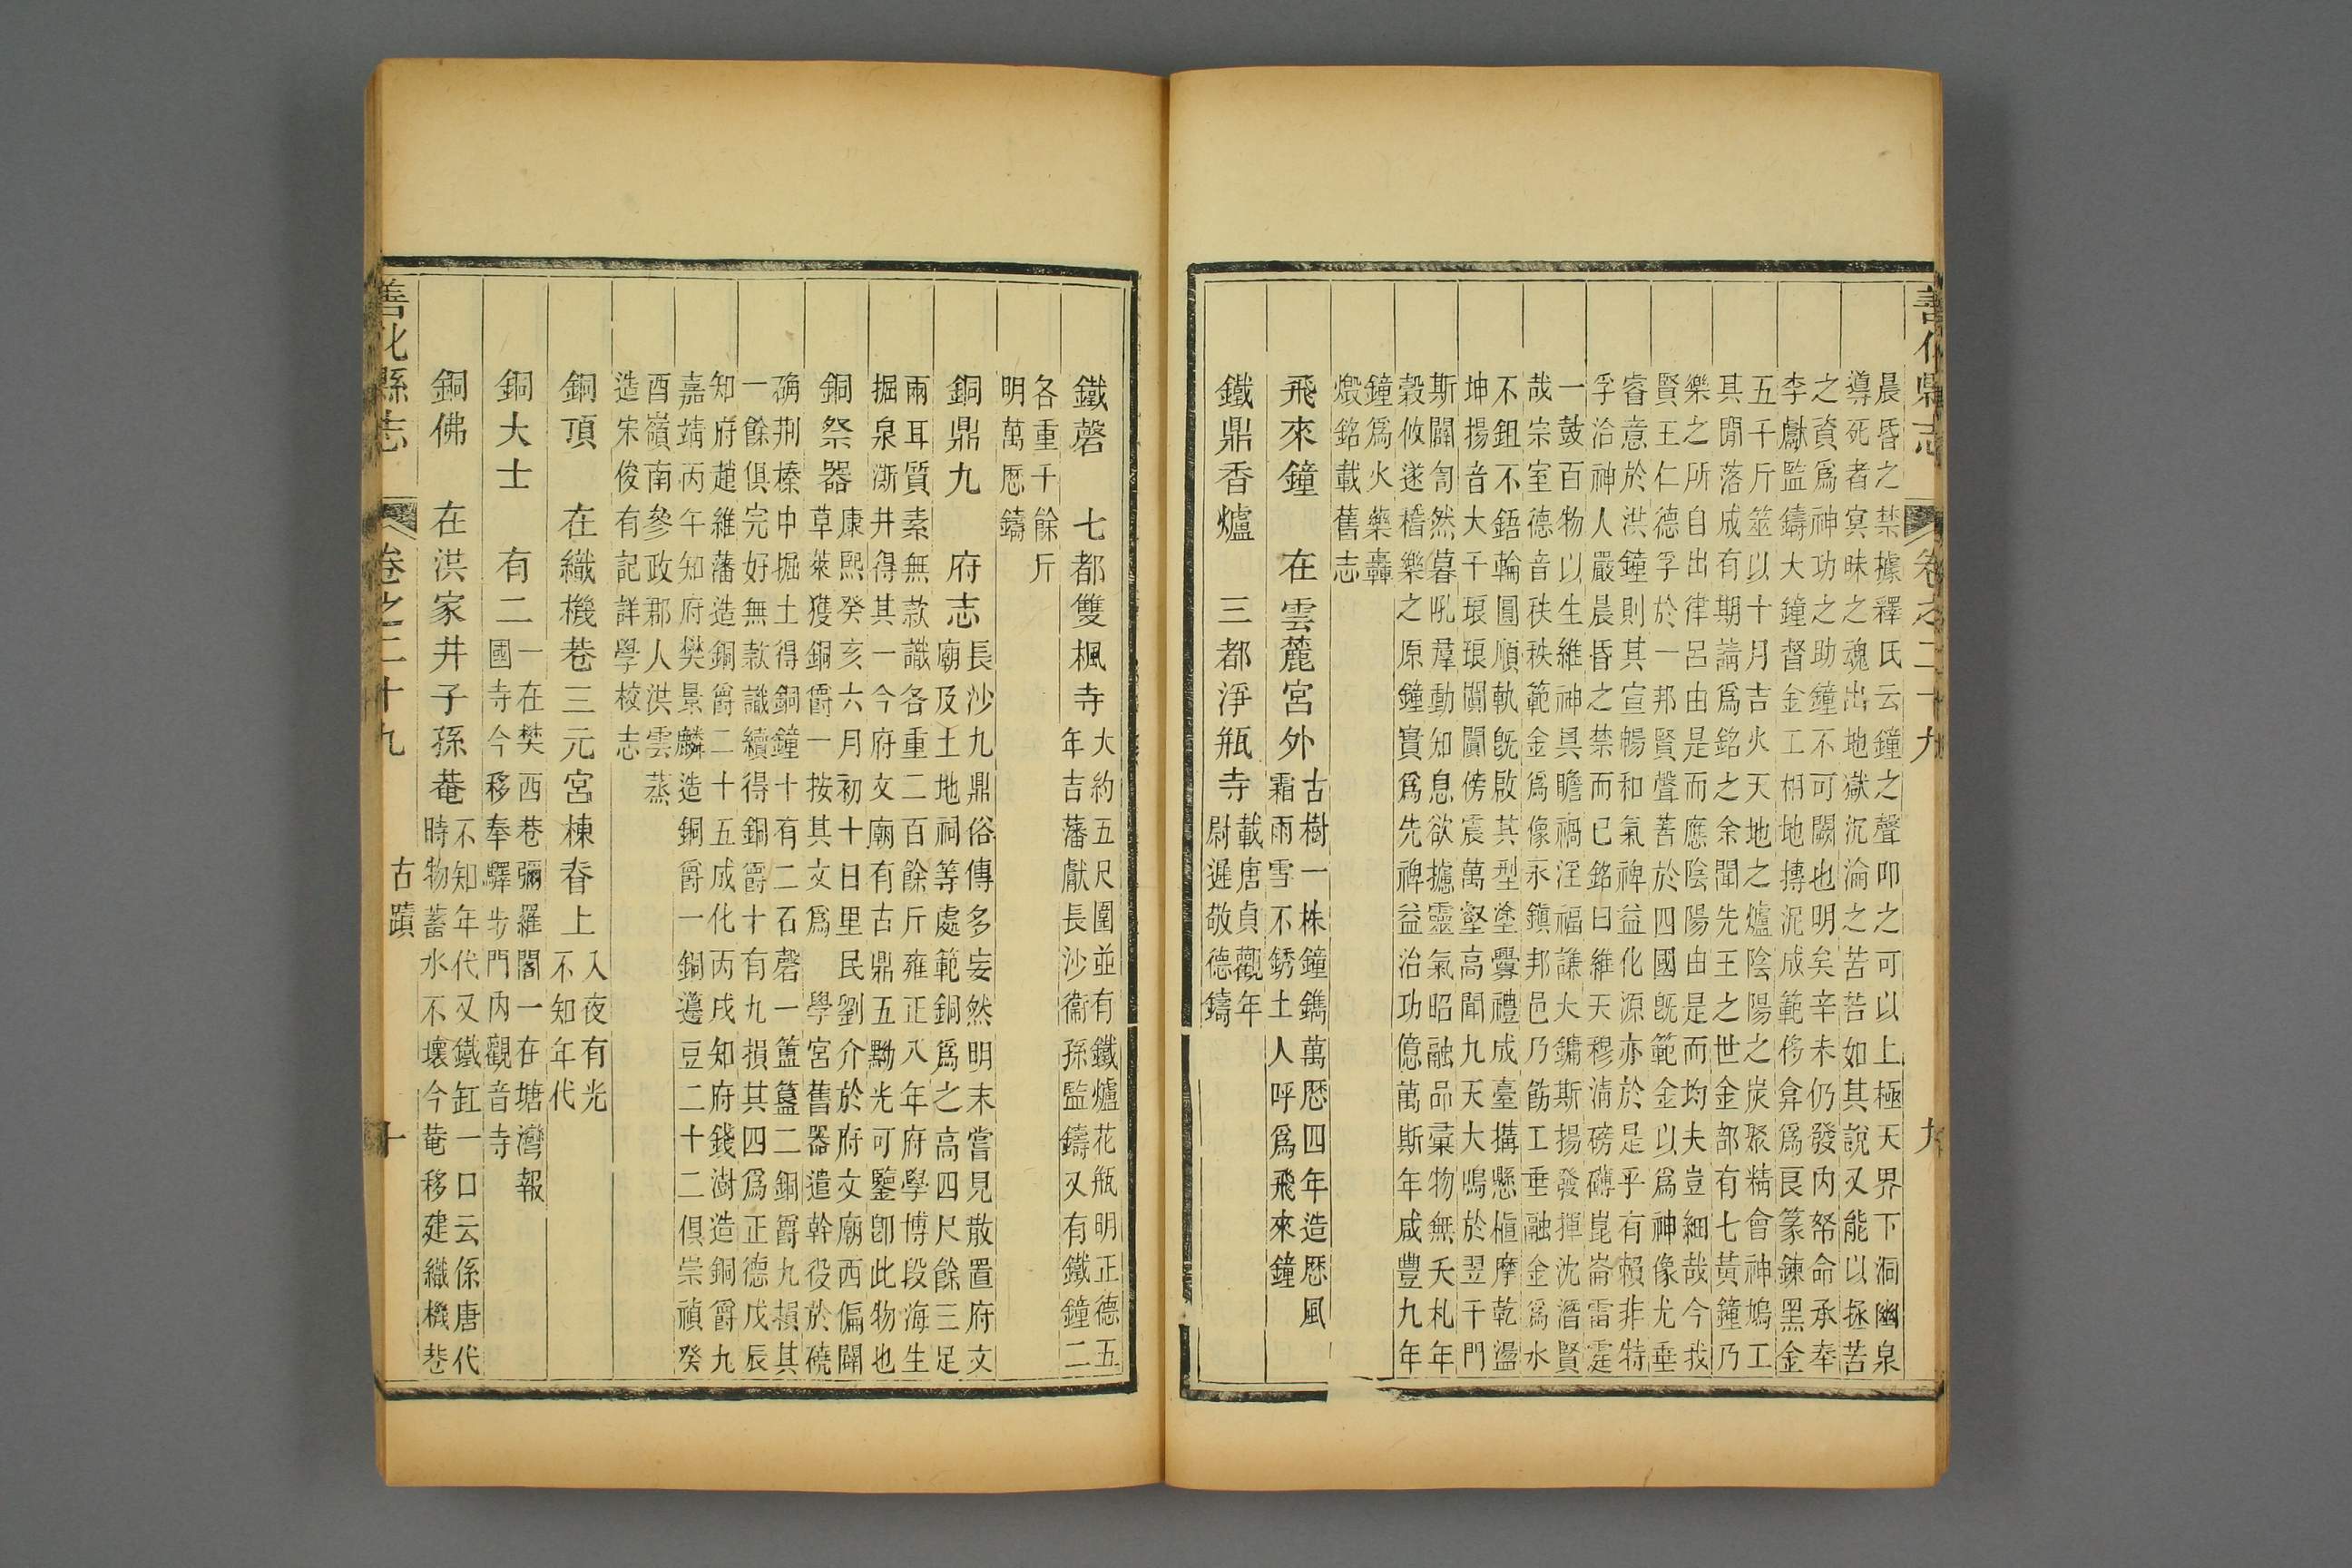 善化縣志 卷之二十九 九
晨昏之禁據釋氏云鐘之聲叩之可以上極天界下洞幽泉
導死者冥昧之魂出地獄沉淪之苦苦如其說又能以拯苦
之資爲神功之助鐘不可闕也明矣辛未仍發內帑命承奉
李獻監鑄大鐘督金工相地摶泥成範侈弇爲良篆鍊黑金
五千斤筮以十月吉火天地之爐陰陽之炭聚精會神鳩工
其閒落成有期請爲銘之余聞先王之世金部有七黃鐘乃
樂之所自出律呂由是而應陰陽由是而均夫豈細哉今我
賢王仁德孚於一邦賢聲著於四國旣範金以爲神像尤垂
睿意於洪鐘則其宣暢和氣裨益化源亦於是乎有賴非特
孚洽神人嚴晨昏之禁而已銘曰維天穆淸磅礴崑崙雷霆
一鼓百物以生維神具瞻禍淫福謙大鏞斯揚發揮沈潛賢
哉宗室德音秩秩範金爲像永鎭邦邑乃飭工垂融金爲水
不鉏不鋙輪圓順軌旣啟其型塗釁禮成臺搆懸植摩乾盪
坤揚音大千琅琅闐闐傍震萬壑高聞九天大鳴於翌干門
斯闢訇然暮吼羣動知息欲攄靈氣昭融品彙物無夭札年
穀攸遂稽樂之原鐘實爲先裨益治功億萬斯年咸豐九年
鐘爲火藥轟
燬銘載舊志
飛來鐘 在雲麓宮外 古樹一株鐘鐫萬歷四年造歷風
霜雨雪不銹土人呼爲飛來鐘
鐵鼎香爐 三都淨瓶寺 載唐貞觀年
尉遲敬德鑄
鐵磬 七都雙楓寺 大約五尺圍並有鐵爐花瓶明正德五
年吉藩獻長沙衞孫監鑄又有鐵鐘二
各重千餘斤
明萬歷鑄
銅鼎九 府志 長沙九鼎俗傳多妄然明末嘗見散置府文
廟及土地祠等處範銅爲之高四尺餘三足
兩耳質素無款識各重二百餘斤雍正八年府學博段海生
掘泉漸井得其一今府文廟有古鼎五黝光可鑒卽此物也
銅祭器 康熙癸亥六月初十日里民劉介於府文廟西偏闢
草萊獲銅爵一按其文爲學宮舊器遣幹役於磽
确荆榛中掘土得銅鐘十有二石磬一簠簋二銅爵九損其
一餘俱完好無款識續得銅爵十有九損其四爲正德戊辰
知府趙維藩造銅爵二十五成化丙戌知府錢澍造銅爵九
嘉靖丙午知府樊景麟造銅爵一銅籩豆二十二俱崇禎癸
酉嶺南參政郡人洪雲蒸
造宋俊有記詳學校志
銅頂 在織機巷三元宮棟脊上 入夜有光
不知年代
銅大士 有二 一在樊西巷彌羅閣一在塘灣報
國寺今移奉驛步門內觀音寺
銅佛 在洪家井子孫菴 不知年代又鐵缸一口云係唐代
時物蓄水不壞今菴移建織機巷
善化縣志 卷之二十九 古蹟 十